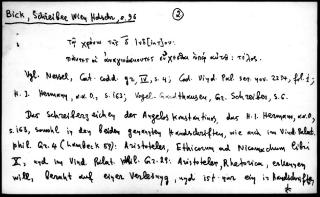 Bick, Schreiber Wien. Hdschr., n. 36 ②
τῇ χρόνῳ τῆς δ ἰνδ[ικτ]ιον:
πάντες οἱ ἀναγινώσκοντες εὔχεσθαι ὑπὲρ αὐτοῦ: τέλος.
Vgl. Nessel, Cat. codd. gr., IV, S. 4; Cod. Vind. Pal. ser. nov. 2224, fol. 1;
H. J. Hermann, a.a.O., S. 163; Vogel-Gardthausen, Gr. Schreiber, S. 6.
Das Schreiberzeichen des Angelus Konstantinus, das H. J. Hermann, a.a.O.,
S. 163, sowohl in den beiden genannten Handschriften, wie auch im Vind. Palat.
phil. Gr. 4 (Lambeck 59): Aristoteles, Ethicorum ad Nicomachum libri
X, und im Vind. Palat. phil. Gr. 29: Aristoteles, Rhetorica, erkennen
will, beruht auf einer Verlesung, und ist nur ein in Handschriften